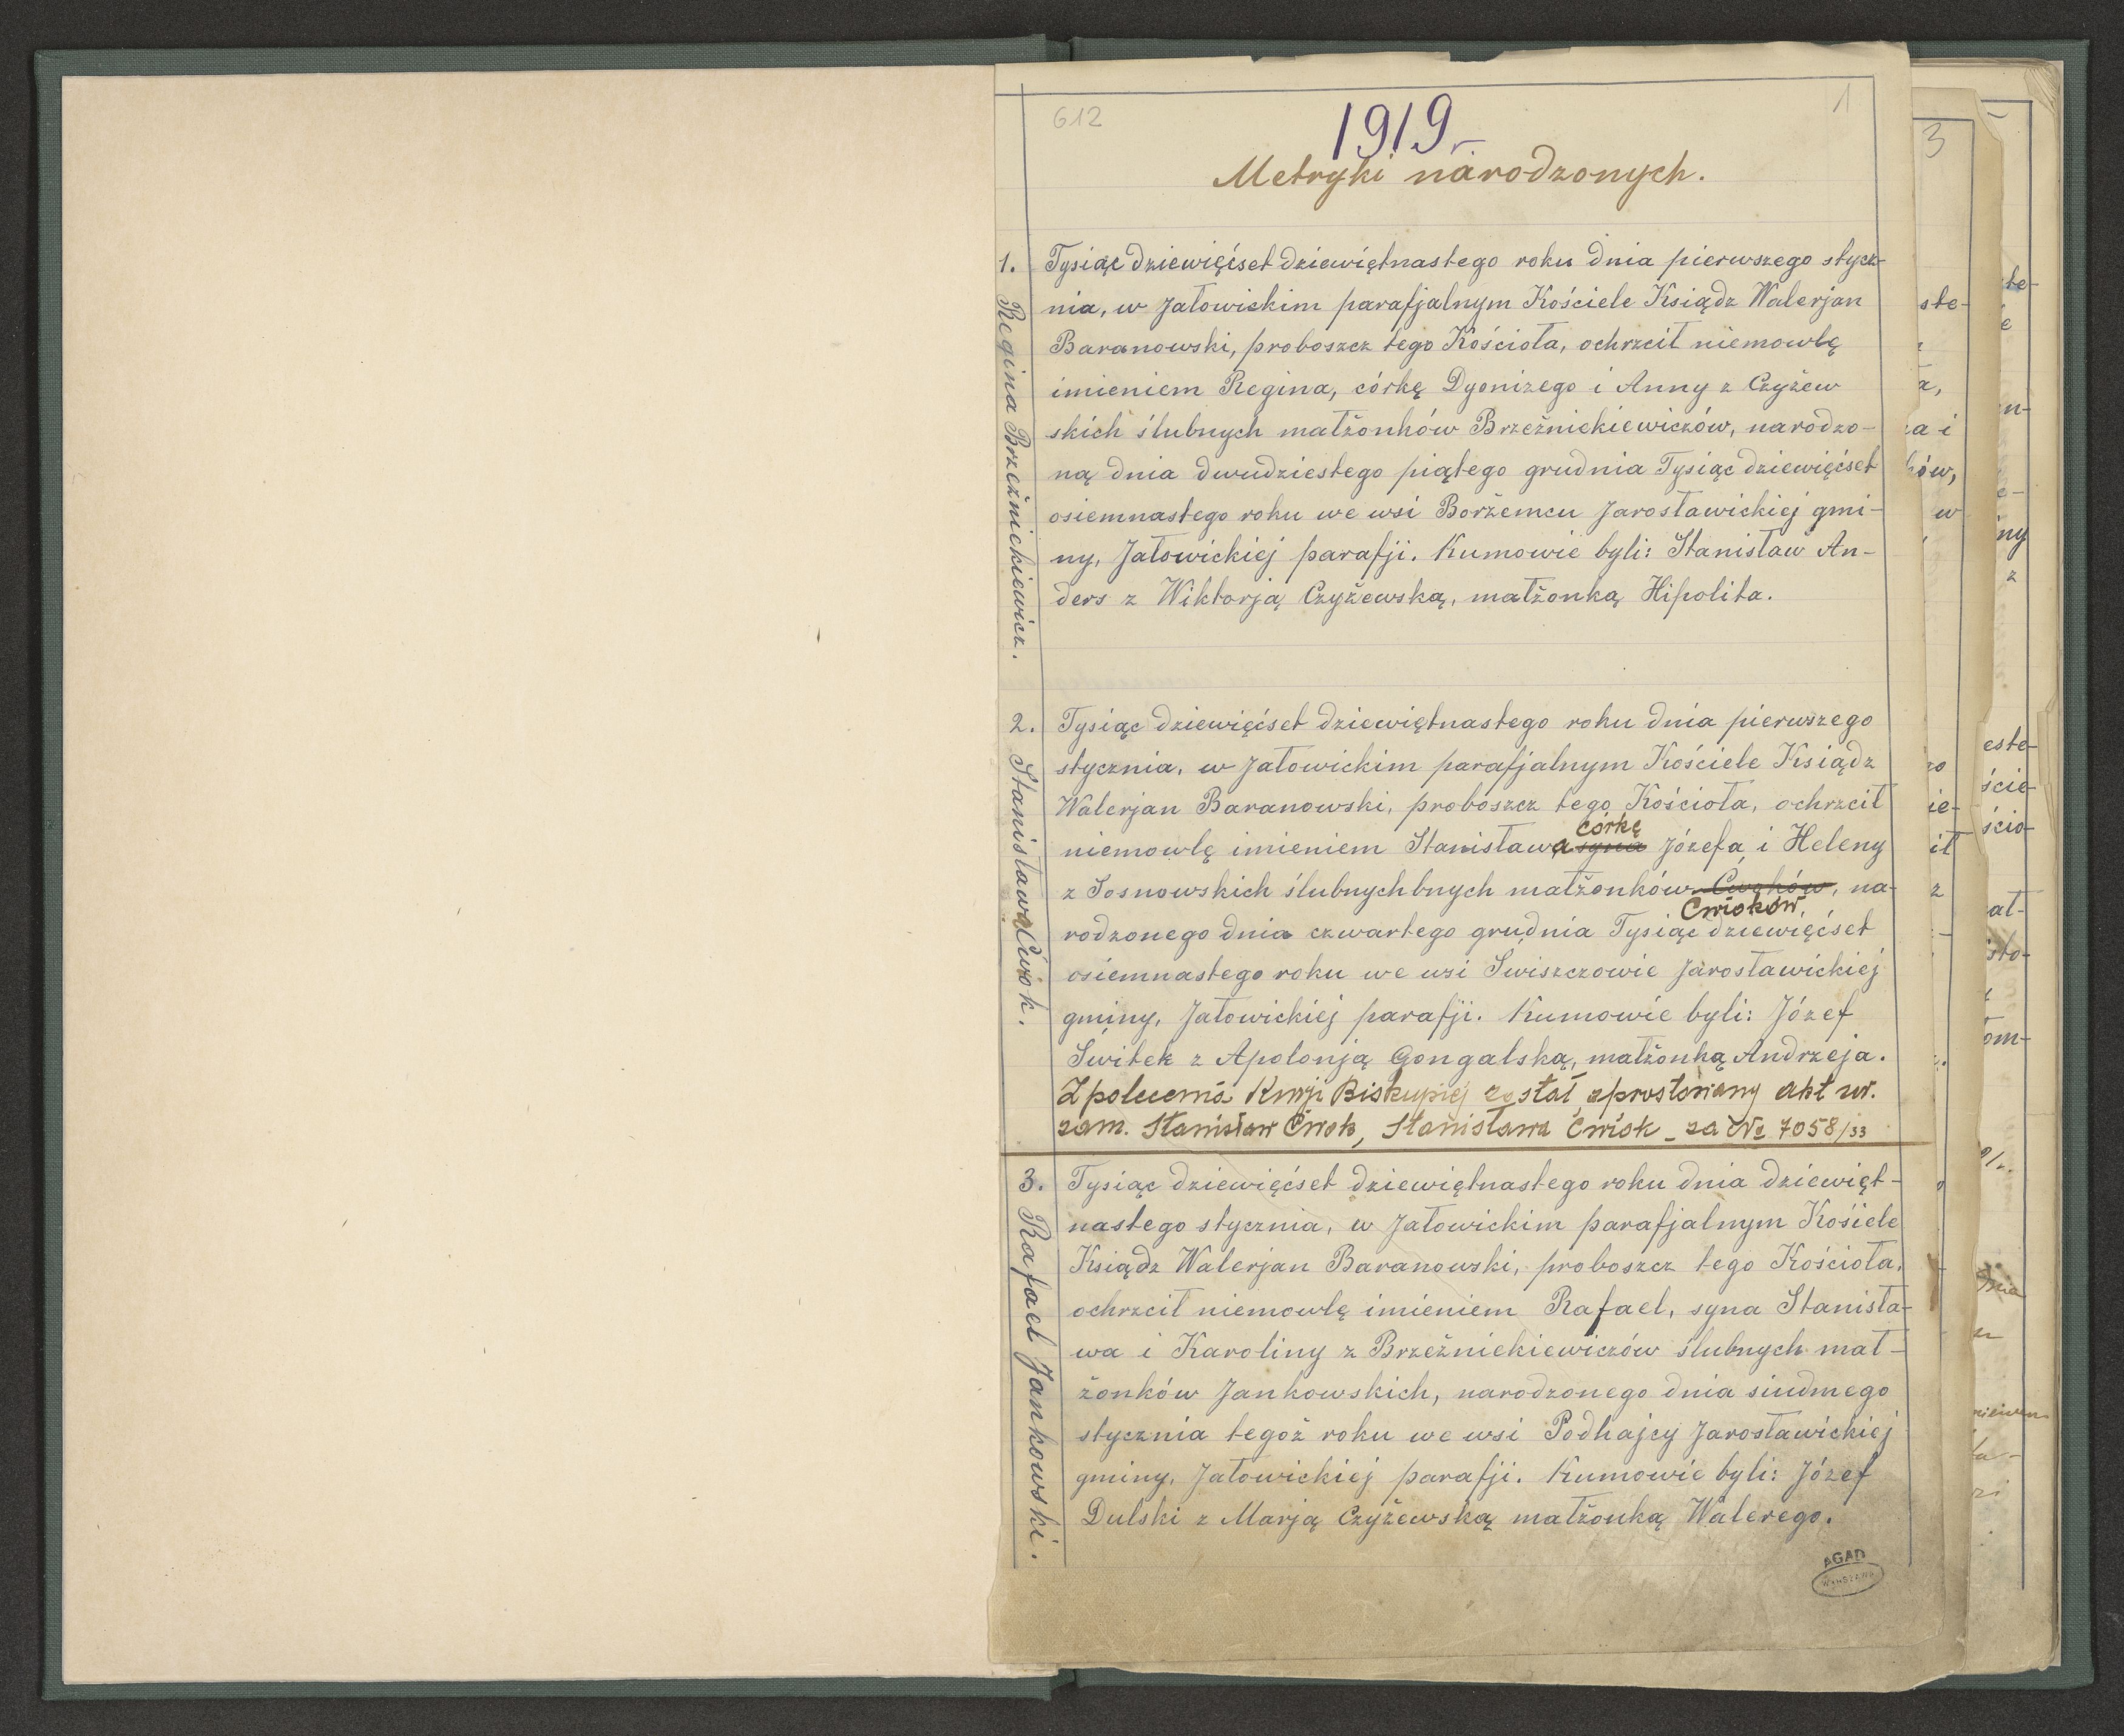 612
1
1919
Metryki narodzonych.
1.
Regina Brzeźnickiewicz.
Tysiąc dziewięćset dziewiętnastego roku dnia pierwszego stycz-
nia, w Jałowickim parafjalnym Kościele Ksiądz Walerjan
Baranowski, proboszcz tego Kościoła, ochrzcił niemowlę
imieniem Regina, córkę Dyonizego i Anny z Czyżew
skich ślubnych małżonków Brzeźnickiewiczów, narodzo-
ną dnia dwudziestego piątego grudnia Tysiąc dziewięćset
osiemnastego roku we wsi Borżemcu Jarosławickiej gmi-
ny, Jałowickiej parafji. Kumowie byli: Stanisław An-
ders z Wiktorją Czyżewską, małżonką Hipolita.
2.
Stanisława Ćwiok.
Tysiąc dziewięćset dziewiętnastego roku dnia pierwszego
stycznia, w Jałowickim parafjalnym Kościele Ksiądz
Walerjan Baranowski, proboszcz tego Kościoła, ochrzcił
córkę
niemowlę imieniem Stanisława syna Józefa i Heleny
z Sosnowskich ślubnychbnych małżonków Cwoków, na-
Ćwioków,
rodzonego dnia czwartego grudnia Tysiąc dziewięćset
osiemnastego roku we wsi Świszczowie Jarosławickiej
gminy, Jałowickiej parafji. Kumowie byli: Józef
Świtek z Apolonją Gongalską, małżonką Andrzeja.
Z polecenia Kurji Biskupiej został sprostowany akt ur.
zam. Stanisław Ćwok, Stanisława Ćwiok - za № 7058/33
3.
Rafael Jankowski.
Tysiąc dziewięćset dziewiętnastego roku dnia dziewięt-
nastego stycznia, w Jałowickim parafjalnym Kościele
Ksiądz Walerjan Baranowski, proboszcz tego Kościoła,
ochrzcił niemowlę imieniem Rafael, syna Stanisła-
wa i Karoliny z Brzeźnickiewiczów ślubnych mał-
żonków Jankowskich, narodzonego dnia siudmego
stycznia tegoż roku we wsi Podhajcy Jarosławickiej
gminy, Jałowickiej parafji. Kumowie byli: Józef
Dulski z Marją Czyżewską małżonką Walerego.
AGAD
WARSZAWA
3